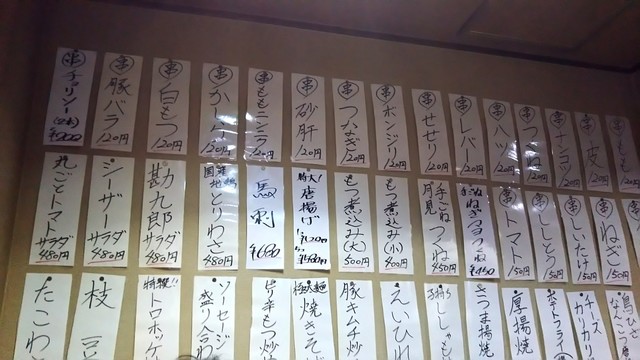 串 チョリソー
串 豚バラ 120円
串 白もつ 120円
串
串 ももニンニク 120円
串 砂肝 120円
串 つなぎ 120円
串 ボンジリ 120円
串 せせり 120円
串 レバー 120円
串 ハツ 120円
串 つくね 120円
串 ナンコツ 120円
皮 120円
もも 120円
丸ごとトマトサラダ 480円
シーザーサラダ 480円
勘九郎サラダ 480円
国産地鶏 とりわさ 480円
馬刺 ¥680
特大! 唐揚げ
もつ煮込み(大) 500円
もつ煮込み(小) 400円
手ごね月見つくね 450円
¥450
串 トマト 150円
串 ししとう 150円
串 しいたけ 150円
串 ねぎ 150円
たこわ
枝豆
特製!! トロホッケ
ソーセージ盛り合わ
ピリ辛もつ炒
極太麺 焼きそ
豚キムチ炒
えいひれ
ししゃも
さつま揚
厚揚焼
ポテトフライ
チーズカリカリ